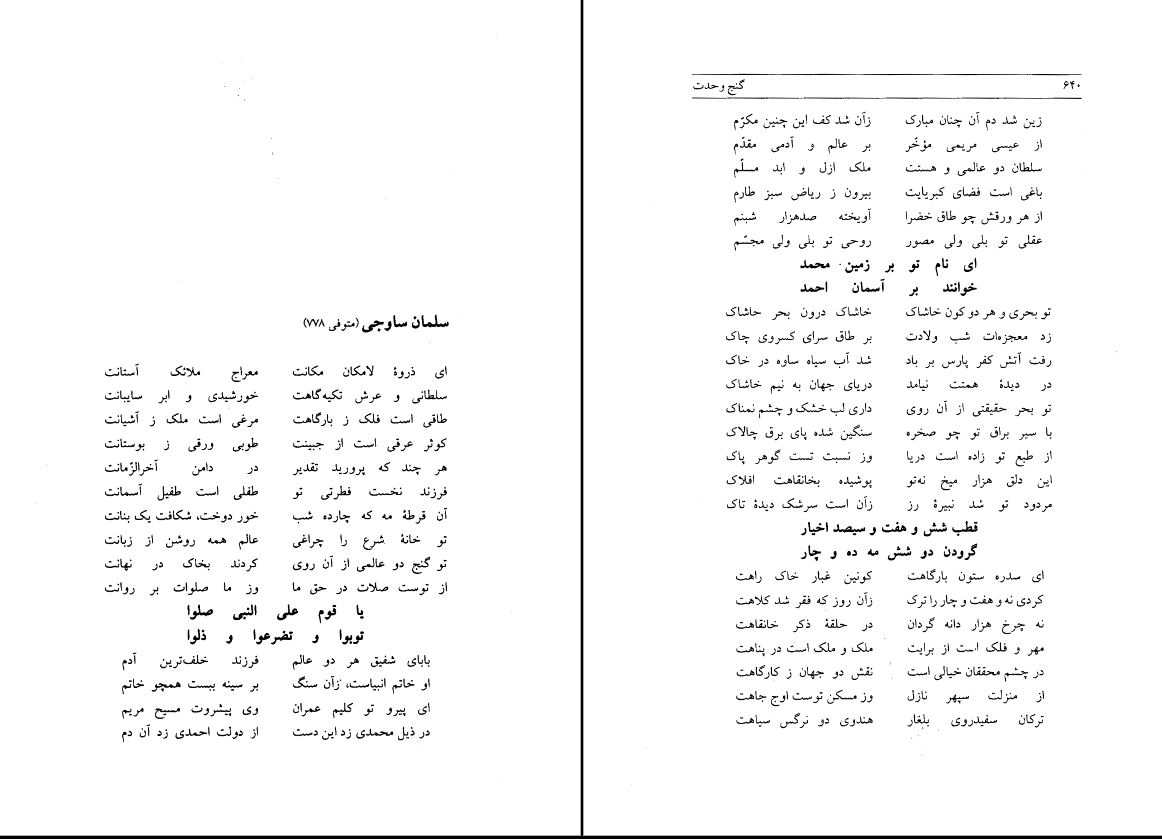 سلمان ساوجی (متوفی ۷۷۸)
ای ذروهٔ لامکان مکانت معراج ملائک آستانت
سلطانی و عرش تکیه‌گاهت خورشیدی و ابر سایبانت
طاقی است فلک ز بارگاهت مرغی است ملک ز آشیانت
کوثر عرقی است از جبینت طوبی ورقی ز بوستانت
هر چند که پرورید تقدیر در دامن آخرالزّمانت
فرزند نخست فطرتی تو طفلی است طفیل آسمانت
آن قرطهٔ مه که چارده شب خور دوخت، شکافت یک بنانت
تو خانهٔ شرع را چراغی عالم همه روشن از زبانت
تو گنج دو عالمی از آن روی کردند بخاک در نهانت
از توست صلات در حق ما وز ما صلوات بر روانت
یا قوم علی النبی صلوا
توبوا و تضرعوا و ذلوا
بابای شفیق هر دو عالم فرزند خلف‌ترین آدم
او خاتم انبیاست، زآن سنگ بر سینه ببست همچو خاتم
ای پیرو تو کلیم عمران وی پیشروت مسیح مریم
در ذیل محمدی زد این دست از دولت احمدی زد آن دم
۶۴۰ گنج وحدت
زین شد دم آن چنان مبارک زآن شد کف این چنین مکرّم
از عیسی مریمی مؤخّر بر عالم و آدمی مقدّم
سلطان دو عالمی و هستت ملک ازل و ابد مسلّم
باغی است فضای کبریایت بیرون ز ریاض سبز طارم
از هر ورقش چو طاق خضرا آویخته صدهزار شبنم
عقلی تو بلی ولی مصور روحی تو بلی ولی مجسّم
ای نام تو بر زمین محمد
خوانند بر آسمان احمد
تو بحری و هر دو کون خاشاک خاشاک درون بحر حاشاک
زد معجزه‌ات شب ولادت بر طاق سرای کسروی چاک
رفت آتش کفر پارس بر باد شد آب سیاه ساوه در خاک
در دیدهٔ همتت نیامد دریای جهان به نیم خاشاک
تو بحر حقیقتی از آن روی داری لب خشک و چشم نمناک
با سبر براق تو چو صخره سنگین شده پای برق چالاک
از طبع تو زاده است دریا وز نسبت تست گوهر پاک
این دلق هزار میخ نه‌تو پوشیده بخانقاهت افلاک
مردود تو شد نبیرهٔ رز زآن است سرشک دیدهٔ تاک
قطب شش و هفت و سیصد اخیار
گرودن دو شش مه ده و چار
ای سدره ستون بارگاهت کونین غبار خاک راهت
کردی نه و هفت و چار را ترک زآن روز که فقر شد کلاهت
نه چرخ هزار دانه گردان در حلقهٔ ذکر خانقاهت
مهر و فلک است از برایت ملک و ملک است در پناهت
در چشم محققان خیالی است نقش دو جهان ز کارگاهت
از منزلت سپهر نازل وز مسکن توست اوج جاهت
ترکان سفیدروی بلغار هندوی دو نرگس سیاهت